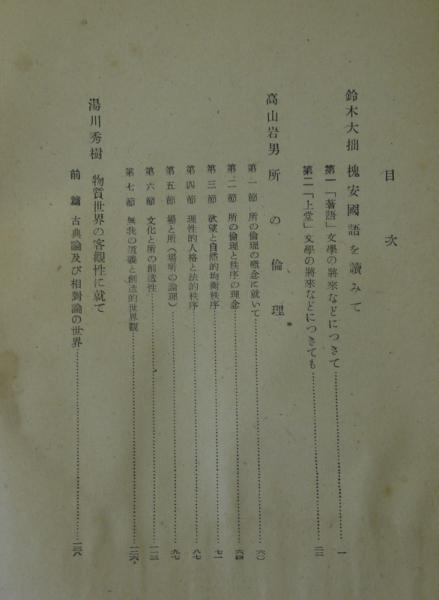 目次
鈴木大拙 槐安國語を讀みて
第一「著語」文學の將來などにつきて……一
第二「上堂」文學の將來などにつきても……三二
高山岩男 所の倫理
第一節 所の倫理の概念に就いて……六〇
第二節 所の倫理と秩序の理念……六四
第三節 欲望と自然的均衡秩序……七一
第四節 理性的人格と法的秩序……八七
第五節 場と所(場所の論理)……九七
第六節 文化と所の創造性……一一三
第七節 無我の眞義と創造的世界觀……一二六
湯川秀樹 物質世界の客觀性に就て
前篇 古典論及び相對論の世界……一三八